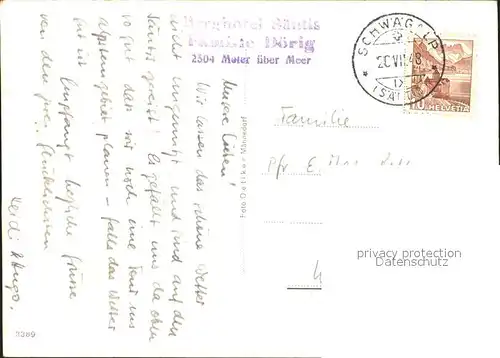 Berghotel Säntis
Familie Dörig
2504 Meter über Meer
SCHWÄGALP
20.VII.48
(SÄNTIS)
10 HELVETIA
Meine Lieben!
Wir lassen das schöne Wetter
nicht ungenützt und sind auf den
Säntis gereist! Es gefällt uns da oben
so gut dass wir noch eine Tour ins
Alpsteingebiet planen – falls das Wetter
gut ist.
Empfangt herzliche Grüsse
von den zwei Glücklichsten
Heidi & Hugo.
3389
Foto
Familie
Pfr E.
privacy protection
Datenschutz